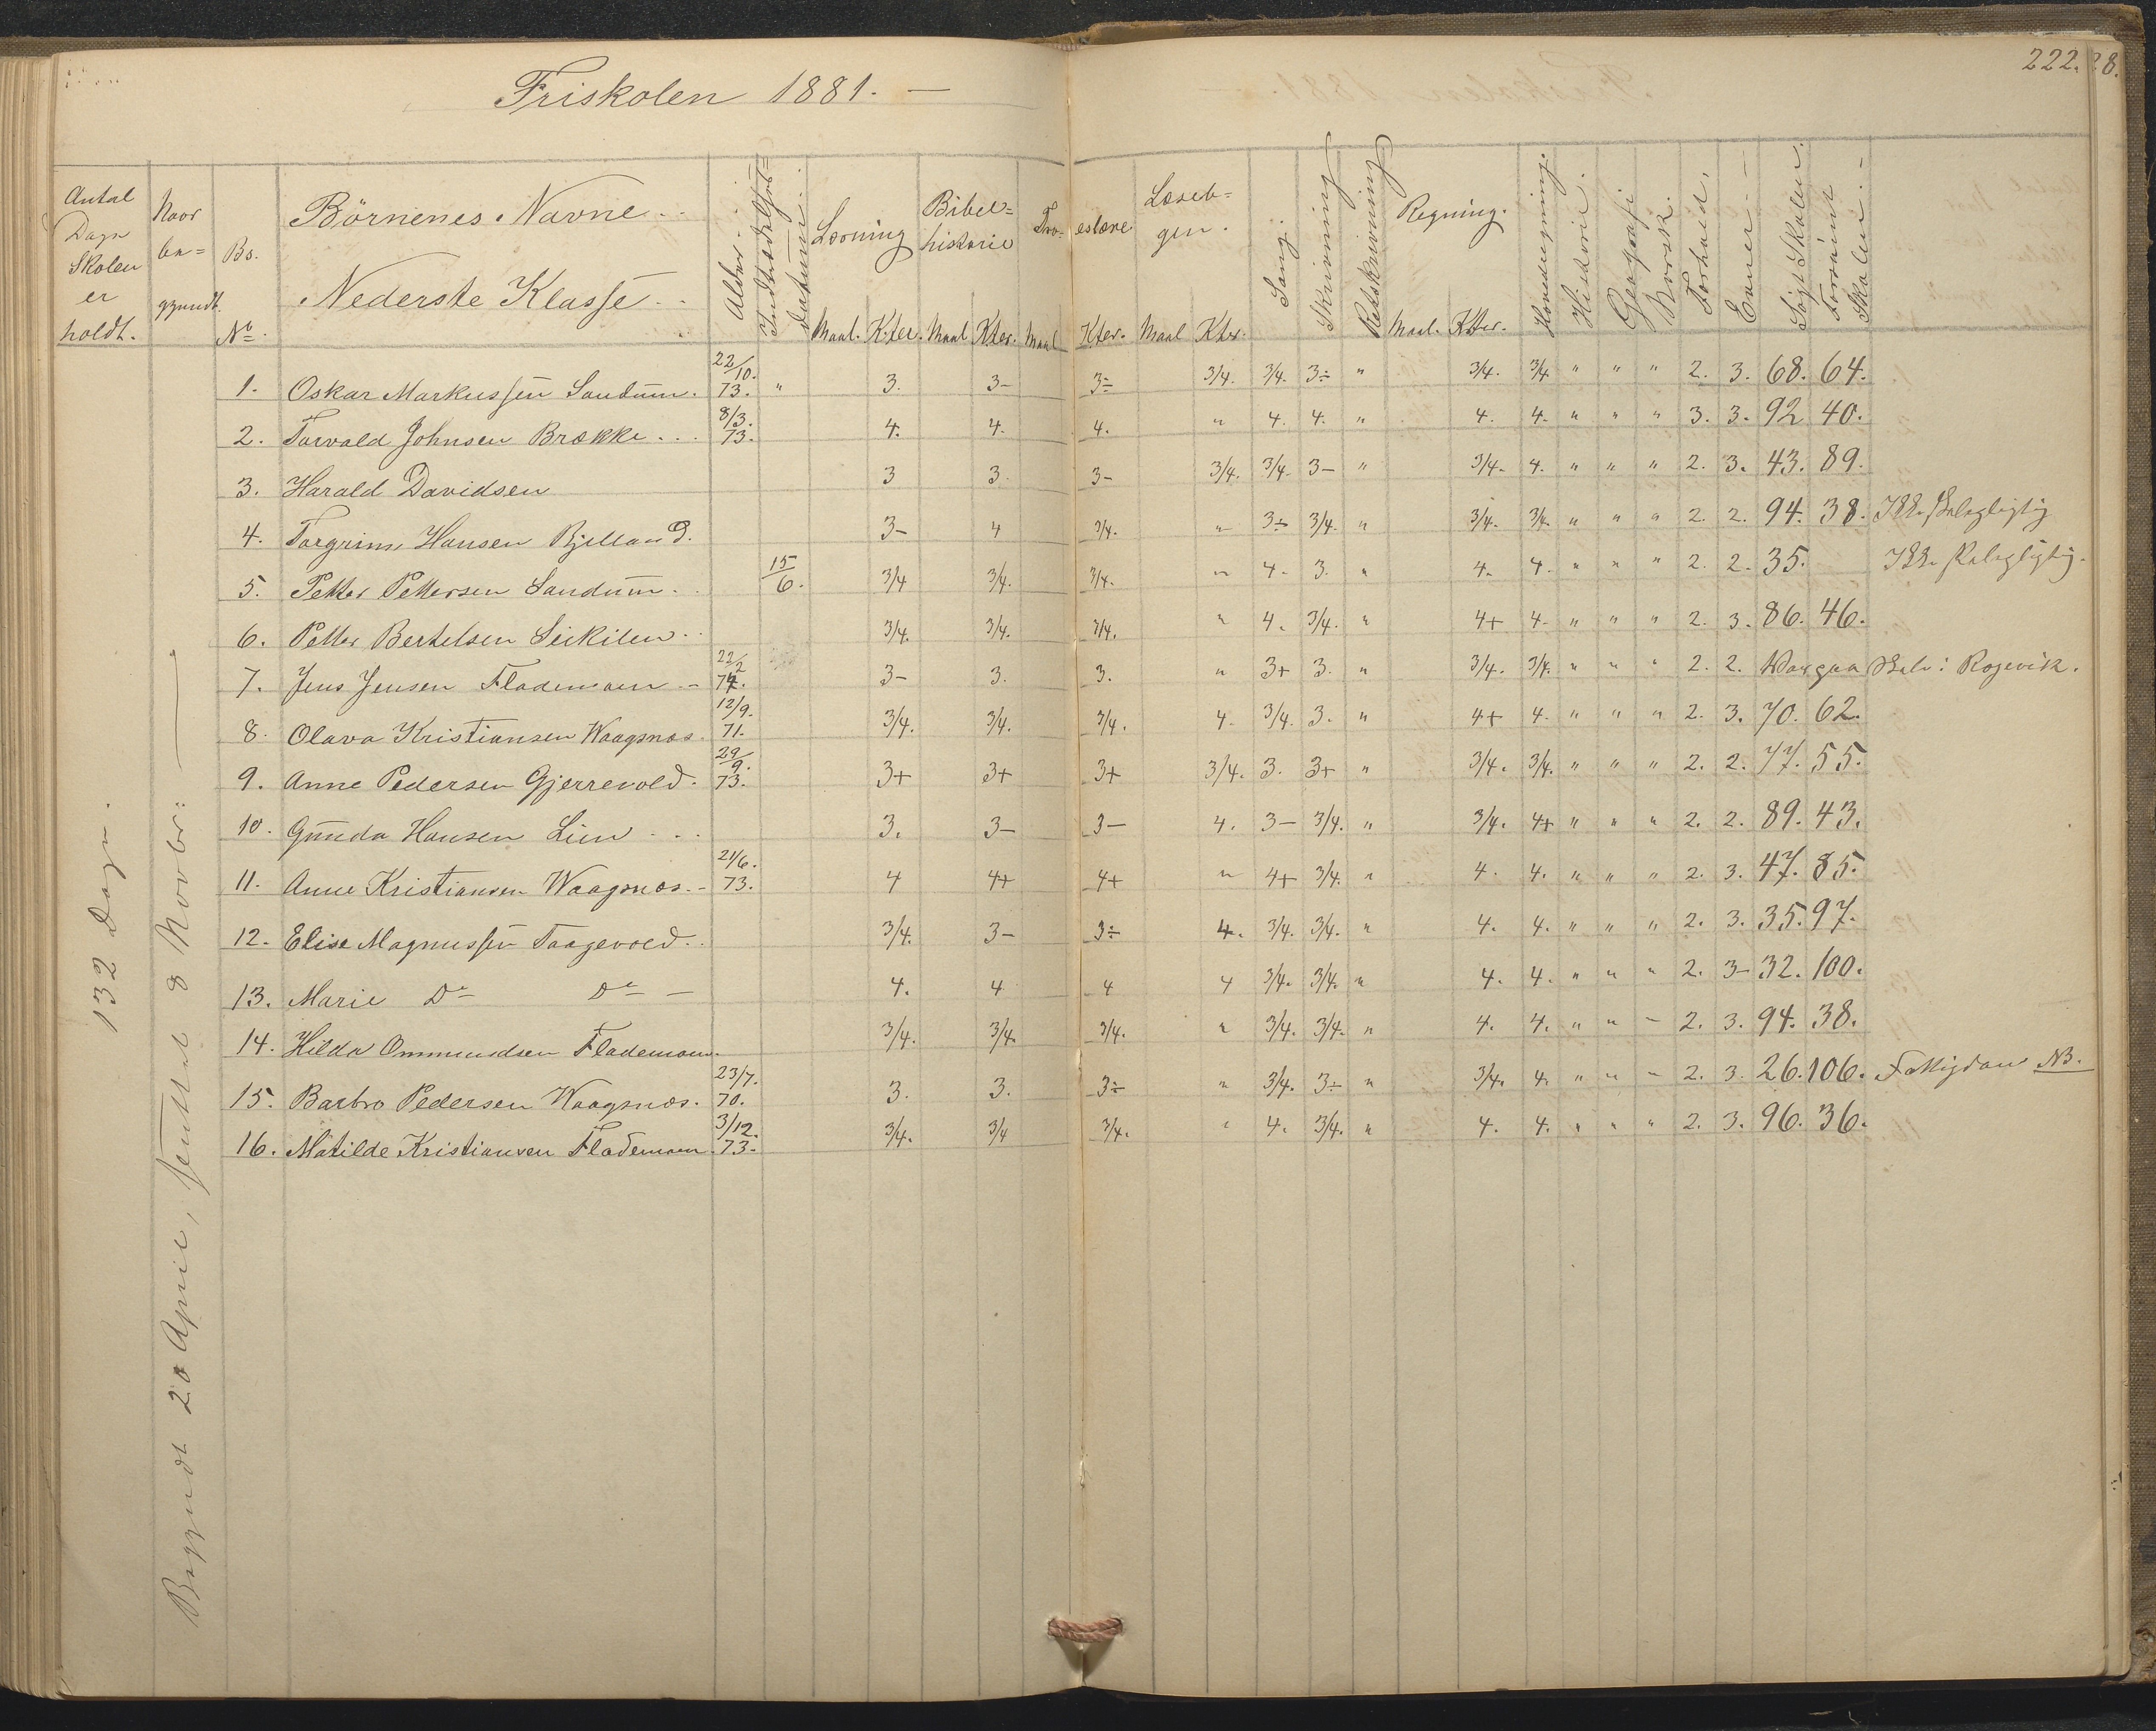 222.
Friskolen 1881. —
Antal Dage Skolen er holdt.
Naar be= gyndt.
No.
Börnenes Navne
Nederste Klasse
Alder.
Læsning Maal. Kter.
Bibel= historie Maal Kter.
Tro= eslære Maal Kter.
Læseb= gen. Maal Kter.
Sang.
Skrivning
Retskrivning
Regning. Maal. Kter.
Hovedregning.
Historie.
Geografi
Norsk.
Forhold.
Evner.
Søgt Skolen.
Forsømt Skolen.
132 Dage.
Begyndt 20 April, sluttet 8 Novbr:
1. Oskar Markussen Sandum. 22/10. 73. " 3. 3- 3÷ 3/4. 3/4. 3÷ " 3/4. 3/4 " " " 2. 3. 68. 64.
2. Torvald Johnsen Brække 8/3. 73. 4. 4. 4. " 4. 4. " 4. 4. " " " 3. 3. 92 40.
3. Harald Davidsen 3 3 3- 3/4. 3/4. 3- " 3/4. 4. " " " 2. 3. 43. 89.
4. Torgrim Hansen Bjelland. 3- 4 3/4. " 3÷ 3/4. " 3/4. 3/4. " " " 2. 2. 94. 38. Ikke skolepligtig
5. Petter Pettersen Sandum. 15/6. 3/4 3/4. 3/4. " 4. 3. " 4. 4. " " " 2. 2. 35. Ikke skolepligtig.
6. Petter Bertelsen 3/4. 3/4. 3/4. " 4. 3/4. " 4+ 4. " " " 2. 3. 86. 46.
7. Jens Jensen Flademoen 22/2 74. 3- 3. 3. " 3+ 3. " 3/4. 3/4. " " " 2. 2. Skole i Rosevik.
8. Olava Kristiansen Waagsnes. 12/9. 71. 3/4. 3/4. 3/4. 4. 3/4. 3. " 4+ 4. " " " 2. 3. 70. 62.
9. Anne Pedersen Gjerrevold. 29/9. 73. 3+ 3+ 3+ 3/4. 3. 3+ " 3/4. 3/4. " " " 2. 2. 77. 55.
10. Gunda Hansen Lien 3. 3- 3- 4. 3- 3/4. " 3/4. 4+ " " " 2. 2. 89. 43.
11. Anne Kristiansen Waagsnes. 21/6. 73. 4 4+ 4+ " 4+ 3/4. " 4. 4. " " " 2. 3. 47. 85.
12. Elise Magnussen Taagevold. 3/4. 3- 3÷ 4. 3/4. 3/4. " 4. 4. " " " 2. 3. 35. 97.
13. Marie Do Do 4. 4 4 4 3/4. 3/4. " 4. 4. " " " 2. 3- 32. 100.
14. Hilda Ommundsen Flademoen. 3/4. 3/4. 3/4. " 3/4. 3/4. " 4. 4. " " - 2. 3. 94. 38.
15. Barbro Pedersen Waagsnes. 23/7. 70. 3. 3. 3÷ " 3/4. 3÷ " 3/4. 4. " " - 2. 3. 26. 106. Fattigdom NB.
16. Matilde Kristiansen Flademoen. 3/12. 73. 3/4. 3/4 3/4. " 4. 3/4. " 4. 4. " " " 2. 3. 96. 36.